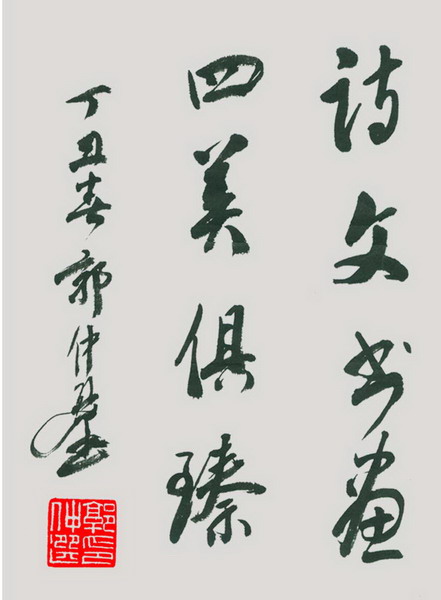 诗文书畫
四美俱臻
丁丑春 郭仲選
郭印仲選